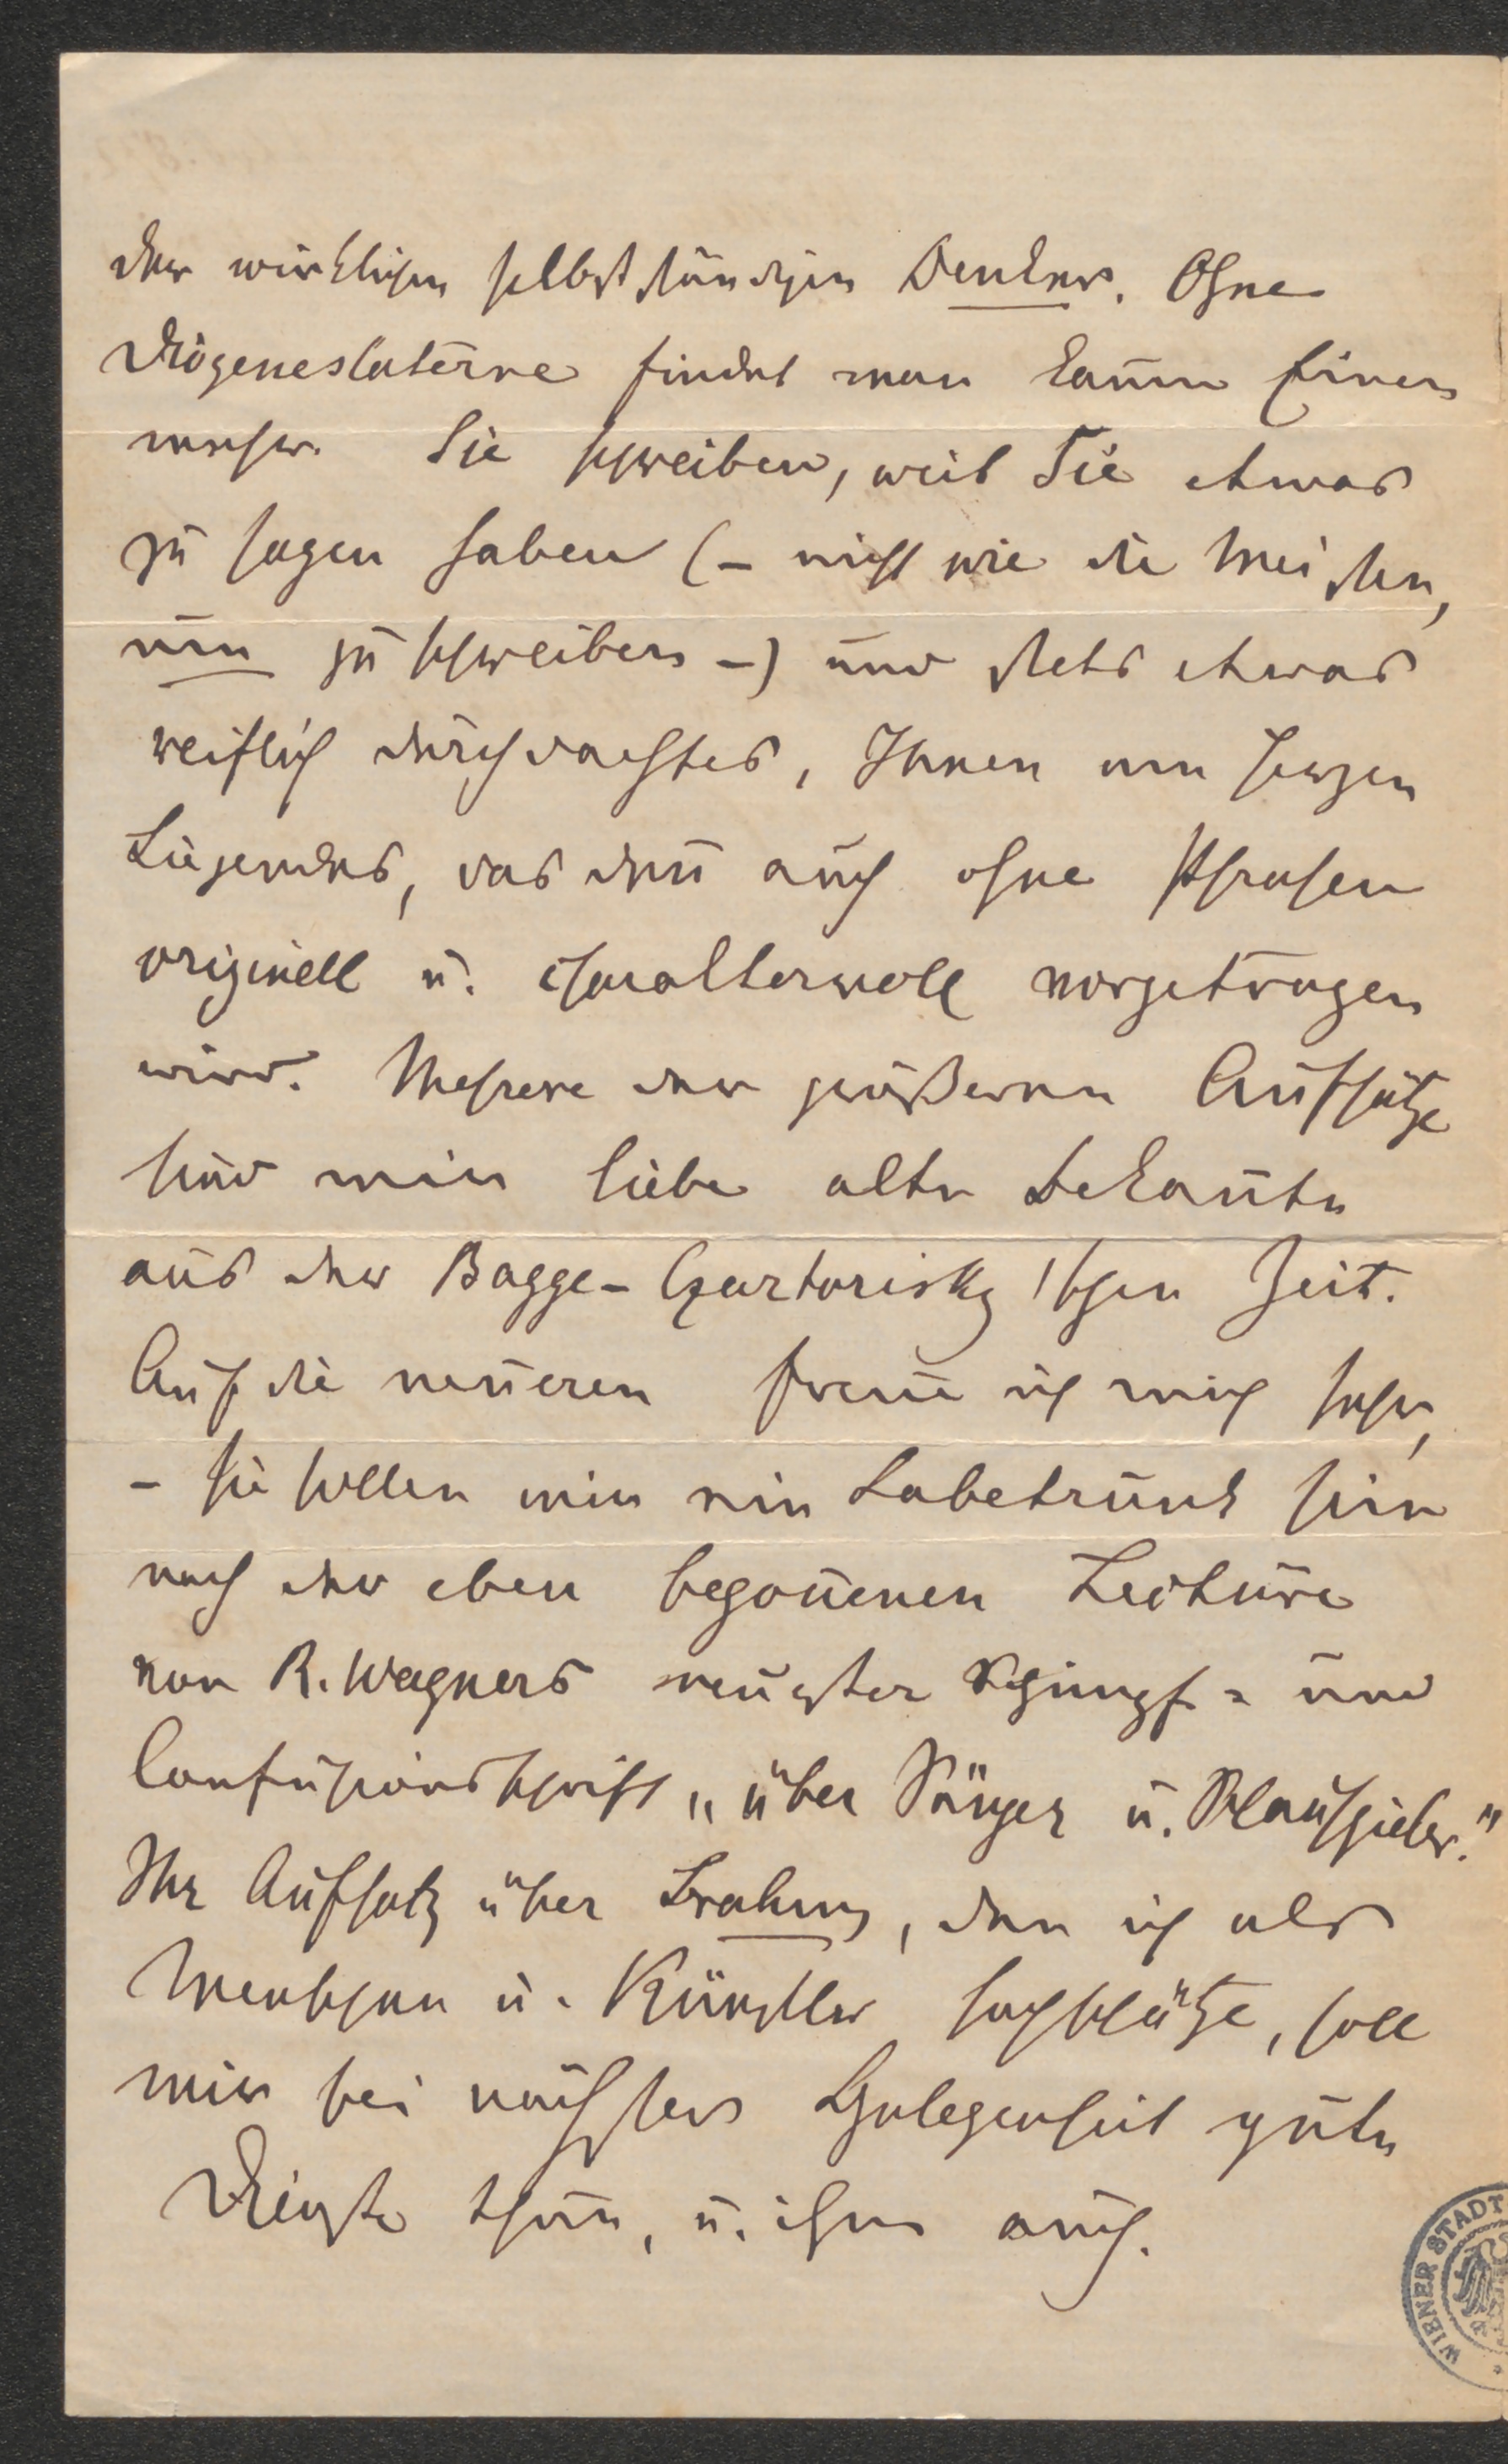 der wirklichen selbstständigen Denker. Ohne
Diogeneslaterne findet man kaum Einen
mehr. Sie schreiben, weil Sie etwas
zu sagen haben (– nicht wie die Meisten,
um zu schreiben –) und stets etwas
reiflich durchdachtes, Ihnen am Herzen
Liegendes, das den̄ auch ohne Phrasen
originell u. charaktervoll vorgetragen
wird. Mehrere der größeren Aufsätze
sind mir liebe alte Bekan̄te
aus der Bagge-Czartorisky'schen Zeit.
Auf die neueren freue ich mich sehr,
– sie sollen mir ein Labetrunk sein
nach der eben begon̄enen Lectüre
von R. Wagners neuester Schimpf- und
Confusionsschrift „über Sänger u. Schauspieler."
Ihr Aufsatz über Brahms, den ich als
Menschen u. Künstler hochschätze, soll
mir bei nächster Gelegenheit gute
Dienste thun, u. ihm auch.
WIENER STADT